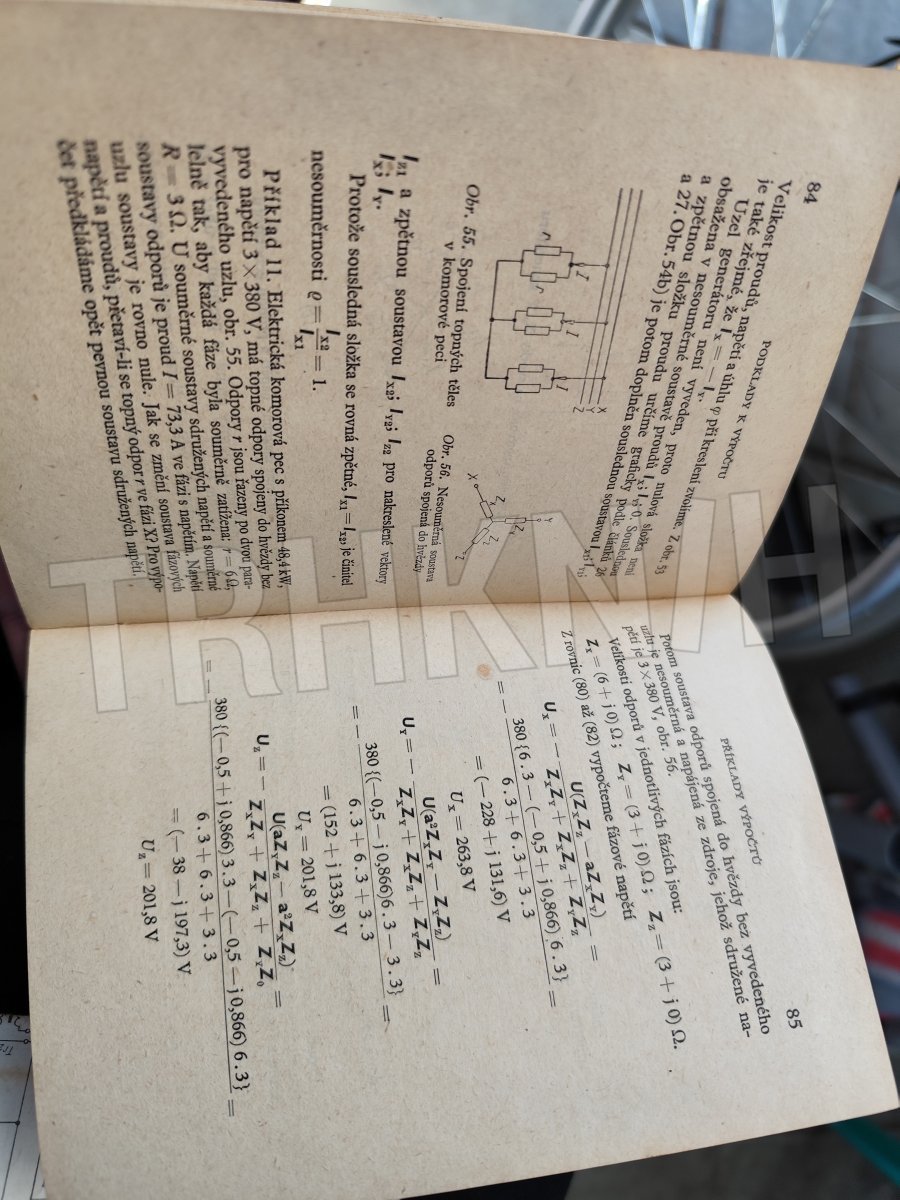 84
PODKLADY K VÝPOČTU
Velikost proudů, napětí a úhlu φ při kreslení zvolíme. Z obr. 53
je také zřejmé, že I_x = — I_Y.
Uzel generátoru není vyveden, proto nulová složka není
obsažena v nesouměrné soustavě proudů I_x; I_Y; 0. Souslednou
a zpětnou složku proudu určíme graficky podle článků 26
a 27. Obr. 54b) je potom doplněn souslednou soustavou I_x1; I_Y1;
X
Y
Z
I
I
I
r
r
X
Z_x
Z_Y
Y
Z_z
Z
Obr. 55. Spojení topných těles
v komorové peci
Obr. 56. Nesouměrná soustava
odporů spojená do hvězdy
I_Z1 a zpětnou soustavou I_x2; I_Y2; I_Z2 pro nakreslené vektory
I_x; I_Y.
Protože sousledná složka se rovná zpětné, I_x1 = I_x2, je činitel
nesouměrnosti ϱ = I_x2 / I_x1 = 1.
Příklad 11. Elektrická komorová pec s příkonem 48,4 kW,
pro napětí 3 × 380 V, má topné odpory spojeny do hvězdy bez
vyvedeného uzlu, obr. 55. Odpory r jsou řazeny po dvou para-
lelně tak, aby každá fáze byla souměrně zatížena: r = 6 Ω,
R = 3 Ω. U souměrné soustavy sdružených napětí a souměrné
soustavy odporů je proud I = 73,3 A ve fázi s napětím. Napětí
uzlu soustavy je rovno nule. Jak se změní soustava fázových
napětí a proudů, přetaví-li se topný odpor r ve fázi X? Pro výpo-
čet předkládáme opět pevnou soustavu sdružených napětí.
PŘÍKLADY VÝPOČTŮ
85
Potom soustava odporů spojená do hvězdy bez vyvedeného
uzlu je nesouměrná a napájená ze zdroje, jehož sdružené na-
pětí je 3 × 380 V, obr. 56.
Velikosti odporů v jednotlivých fázích jsou:
Z_x = (6 + j 0) Ω; Z_Y = (3 + j 0) Ω; Z_z = (3 + j 0) Ω.
Z rovnic (80) až (82) vypočteme fázové napětí
U_x = — U(Z_xZ_z — aZ_xZ_Y) / Z_xZ_Y + Z_xZ_z + Z_YZ_z =
= — 380 {6 . 3 — (— 0,5 + j 0,866) 6 . 3} / 6 . 3 + 6 . 3 + 3 . 3 =
= (— 228 + j 131,6) V
U_x = 263,8 V
U_Y = — U(a²Z_xZ_Y — Z_YZ_z) / Z_xZ_Y + Z_xZ_z + Z_YZ_z =
= — 380 {(—0,5 — j 0,866)6 . 3 — 3 . 3} / 6 . 3 + 6 . 3 + 3 . 3 =
= (152 + j 133,8) V
U_Y = 201,8 V
U_z = — U(aZ_YZ_z — a²Z_xZ_z) / Z_xZ_Y + Z_xZ_z + Z_YZ_0 =
= — 380 {(—0,5 + j 0,866) 3 . 3 — (— 0,5 — j 0,866) 6 . 3} / 6 . 3 + 6 . 3 + 3 . 3 =
= (— 38 — j 197,3) V
U_z = 201,8 V
TRHKNIH